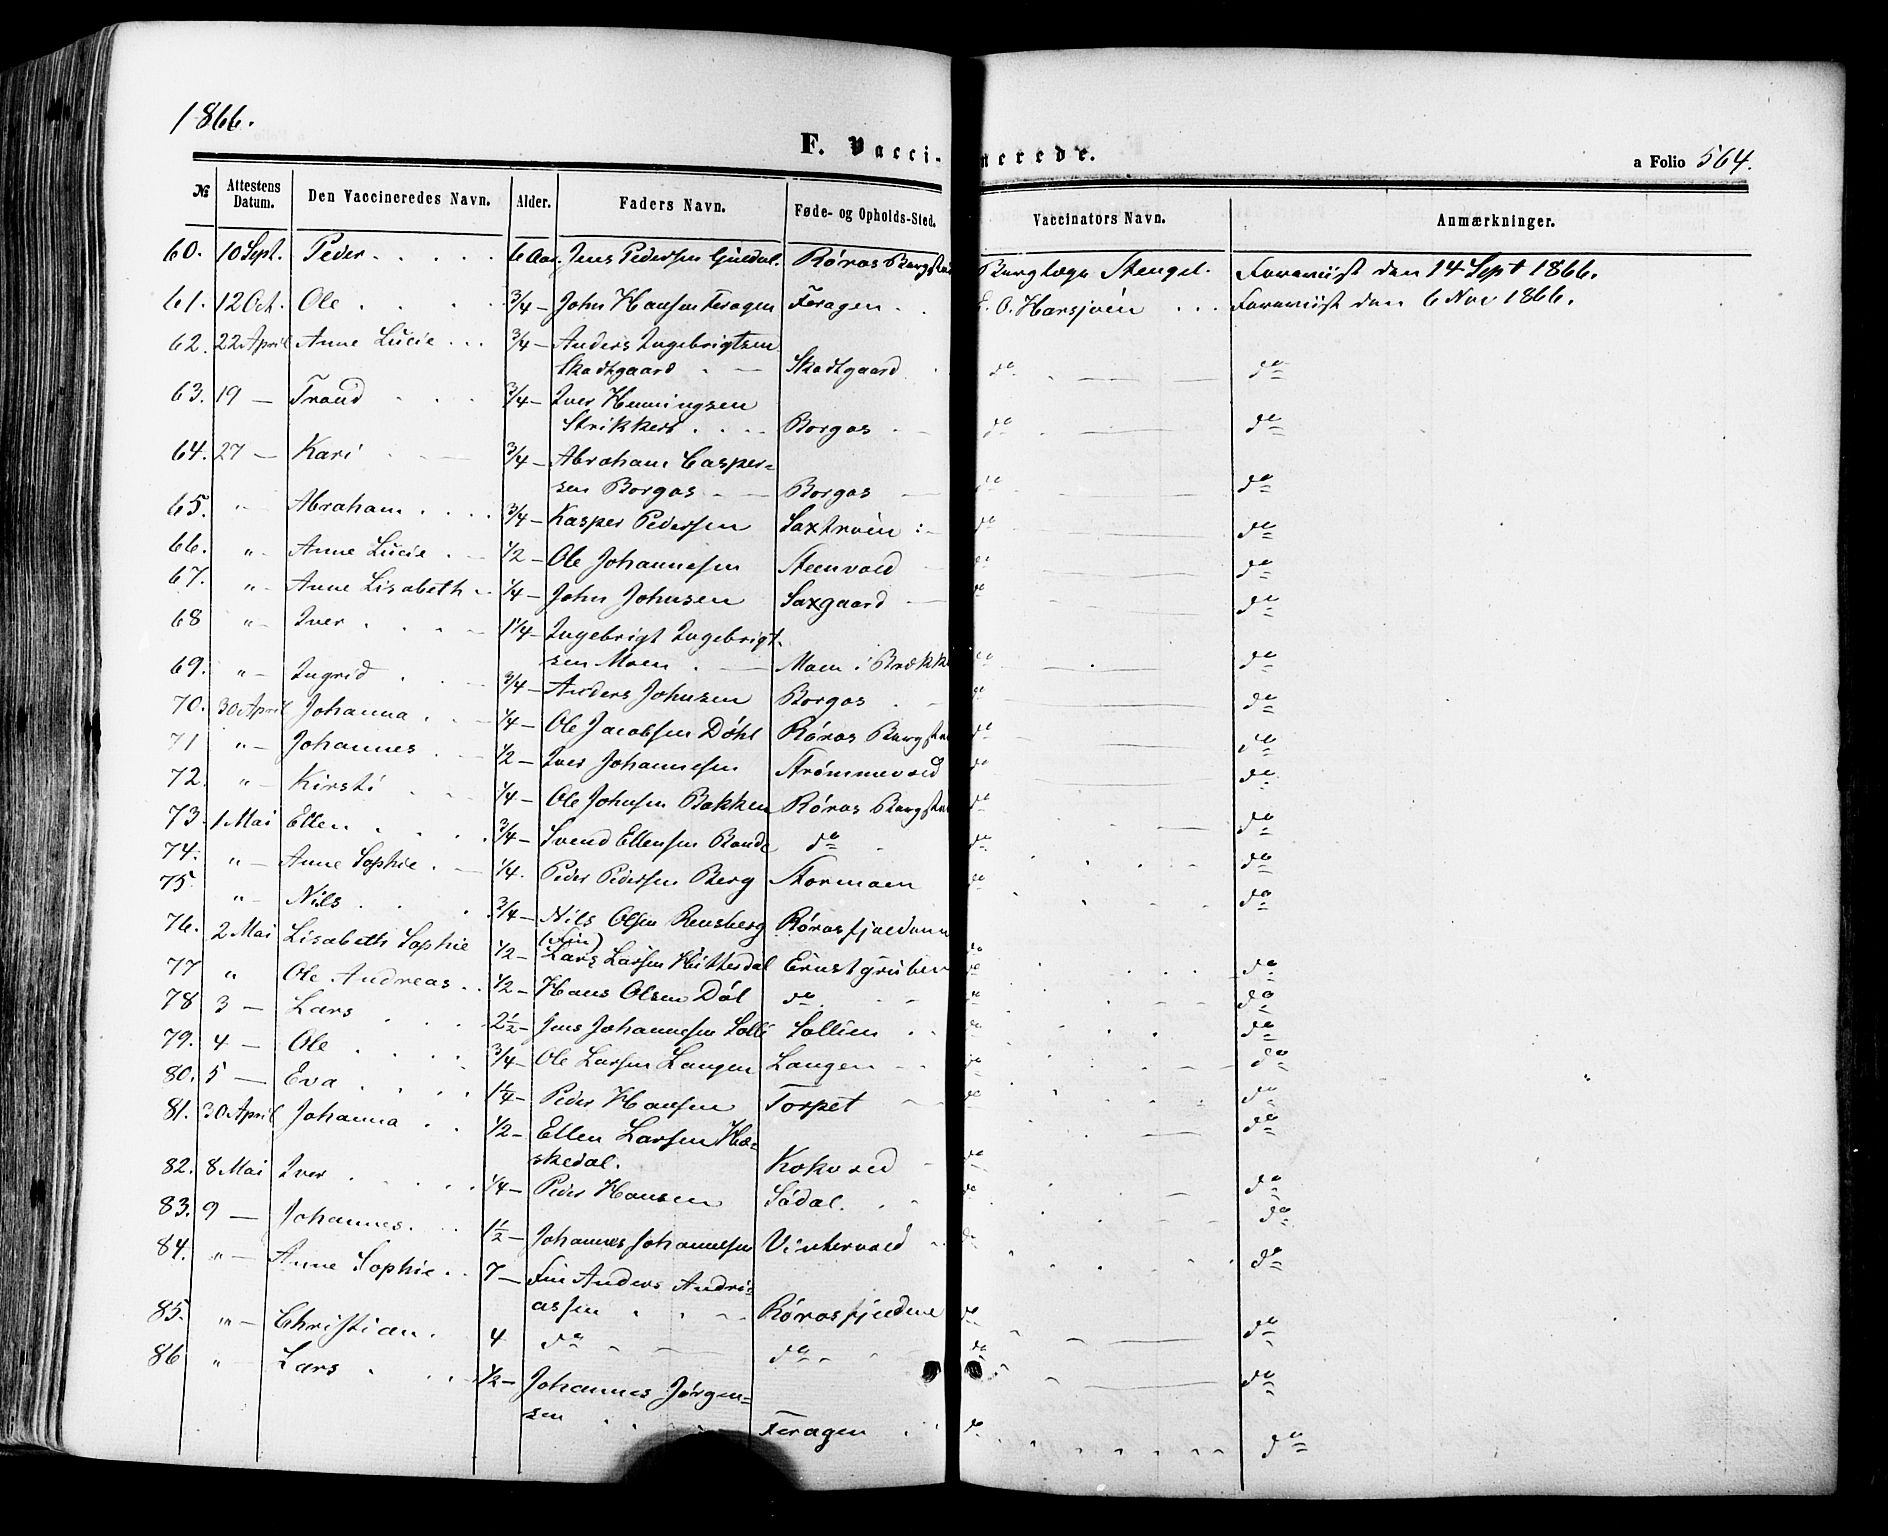 1866.
F. Vaccinerede.
a Folio 564.
№ Attestens Datum. Den Vaccineredes Navn. Alder. Faders Navn. Føde- og Opholds-Sted. Vaccinators Navn. Anmærkninger.
60. 10 Sept. Peder 6 Aar. Jens Pedersen Guldal. Røros Bergstad Berglæge Stengel. Foreviist den 14 Sept 1866.
61. 12 Oct. Ole 3/4 — John Hansen Feragen Feragen E. O. Harsjöen Foreviist den 6 Nov 1866.
62. 22 April Anne Lucie 3/4 — Anders Ingebrigtsen
Skodtgaard Skodtgaard do do
63. 19 — Trond 3/4 — Iver Henningsen
Strikkert Borgos do do
64. 27 — Kari 3/4 — Abraham Casper=
sen Borgos Borgos do do
65. " - Abraham 3/4 — Kasper Pedersen Saxtröen do do
66. " - Anne Lucie 1/2 — Ole Johannesen Steenvold do do
67. " - Anne Lisabeth 1/4 — John Johnsen Saxgaard do do
68 " - Iver 1 1/4 — Ingebrigt Ingebrigt-
sen Moen Moen i Brække do do
69. " - Ingrid 3/4 — Anders Johnsen Borgos do do
70. 30 April Johanna 1/4 — Ole Jacobsen Døhl Røros Bergstad do do
71 " - Johannes 1/2 — Iver Johannesen Strømmevold do do
72. " - Kirsti 1/4 — Ole Johnsen Bakken Røros Bergstad do do
73. 1 Mai Ellen 3/4 — Svend Ellensen do do do
74. " - Anne Sophie 1/4. Peder Pedersen Berg Stormoen do do
75. " - Nils 3/4 — Nils Olsen Rensberg Rørosfjeldene
(Fin)
76. 2 Mai Lisabeth Sophie 1/2 — Lars Larsen Hittesdal Ernstgruben do do
77 " Ole Andreas 1/2 — Hans Olsen Döl do do do
78 3 — Lars 2 1/2 — Jens Johannesen Solli Sollien do do
79. 4 — Ole 3/4 — Ole Larsen Langen Langen do do
80. 5 — Eva 1 1/4 — Peder Hansen Torpet do do
81. 30 April Johanna 1/2 — Ellen Larsen Hæ=
skedal. Kokvold do do
82. 8 Mai Iver 1/4 — Peder Hansen Södal. do do
83. 9 — Johannes. 1 1/2 — Johannes Johannesen Vintervold do do
84. " - Anne Sophie 7 — Fin Anders Andri=
assen Rørosfjeldene do do
85. " - Christian. 4 do do do do
86 " - Lars 1/2 — Johannes Jørgen=
sen Feragen do do